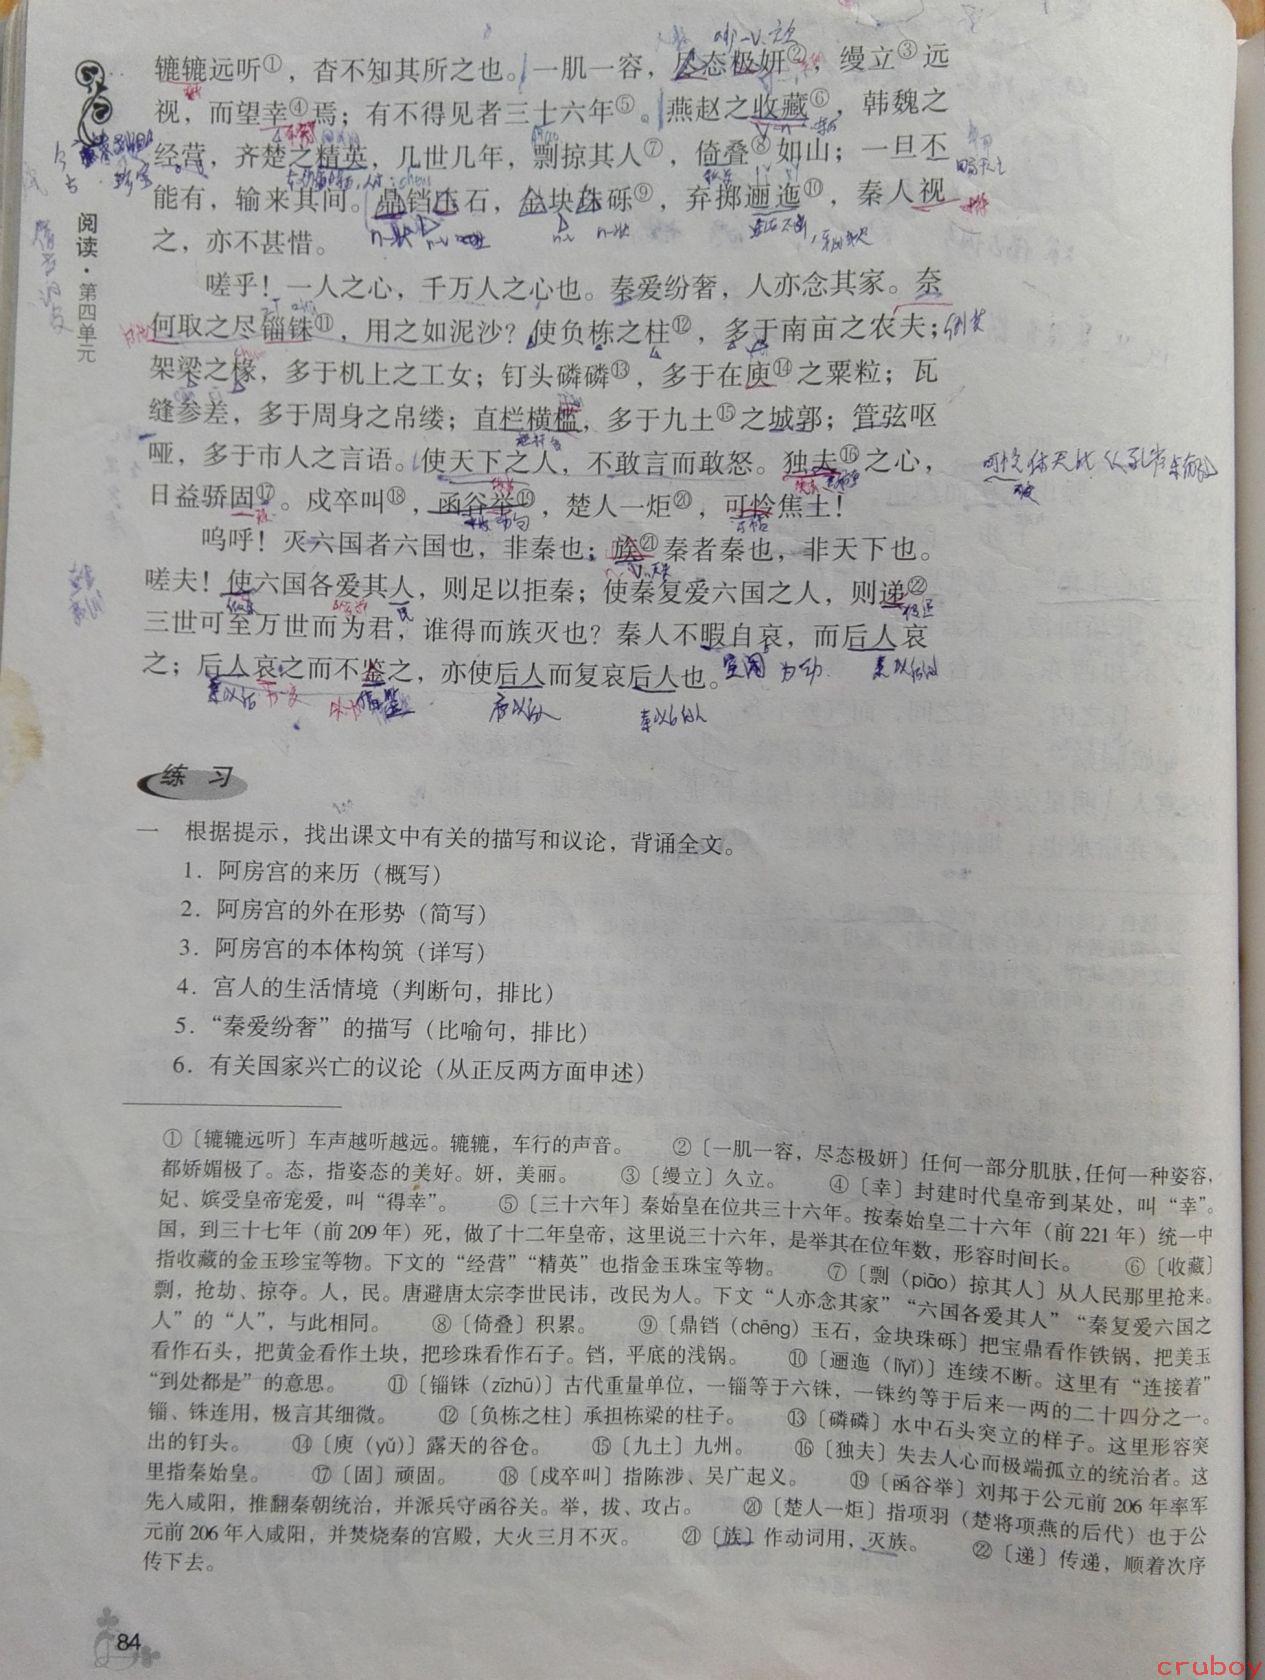 辘辘远听①，杳不知其所之也。一肌一容，尽态极妍②，缦立③远
视，而望幸④焉；有不得见者三十六年⑤。燕赵之收藏⑥，韩魏之
经营，齐楚之精英，几世几年，剽掠其人⑦，倚叠⑧如山；一旦不
能有，输来其间。鼎铛玉石，金块珠砾⑨，弃掷逦迤⑩，秦人视
之，亦不甚惜。
嗟乎！一人之心，千万人之心也。秦爱纷奢，人亦念其家。奈
何取之尽锱铢⑪，用之如泥沙？使负栋之柱⑫，多于南亩之农夫；
架梁之椽，多于机上之工女；钉头磷磷⑬，多于在庾⑭之粟粒；瓦
缝参差，多于周身之帛缕；直栏横槛，多于九土⑮之城郭；管弦呕
哑，多于市人之言语。使天下之人，不敢言而敢怒。独夫⑯之心，
日益骄固⑰。戍卒叫⑱，函谷举⑲，楚人一炬⑳，可怜焦土！
呜呼！灭六国者六国也，非秦也；族㉑秦者秦也，非天下也。
嗟夫！使六国各爱其人，则足以拒秦；使秦复爱六国之人，则递㉒
三世可至万世而为君，谁得而族灭也？秦人不暇自哀，而后人哀
之；后人哀之而不鉴之，亦使后人而复哀后人也。
阅读·第四单元
练 习
一 根据提示，找出课文中有关的描写和议论，背诵全文。
1．阿房宫的来历（概写）
2．阿房宫的外在形势（简写）
3．阿房宫的本体构筑（详写）
4．宫人的生活情境（判断句，排比）
5．“秦爱纷奢”的描写（比喻句，排比）
6．有关国家兴亡的议论（从正反两方面申述）
①〔辘辘远听〕车声越听越远。辘辘，车行的声音。 ②〔一肌一容，尽态极妍〕任何一部分肌肤，任何一种姿容，
都娇媚极了。态，指姿态的美好。妍，美丽。 ③〔缦立〕久立。 ④〔幸〕封建时代皇帝到某处，叫“幸”。
妃、嫔受皇帝宠爱，叫“得幸”。 ⑤〔三十六年〕秦始皇在位共三十六年。按秦始皇二十六年（前221年）统一中
国，到三十七年（前209年）死，做了十二年皇帝，这里说三十六年，是举其在位年数，形容时间长。 ⑥〔收藏〕
指收藏的金玉珍宝等物。下文的“经营”“精英”也指金玉珠宝等物。 ⑦〔剽（piāo）掠其人〕从人民那里抢来。
剽，抢劫、掠夺。人，民。唐避唐太宗李世民讳，改民为人。下文“人亦念其家”“六国各爱其人”“秦复爱六国之
人”的“人”，与此相同。 ⑧〔倚叠〕积累。 ⑨〔鼎铛（chēng）玉石，金块珠砾〕把宝鼎看作铁锅，把美玉
看作石头，把黄金看作土块，把珍珠看作石子。铛，平底的浅锅。 ⑩〔逦迤（lǐyǐ）〕连续不断。这里有“连接着”
“到处都是”的意思。 ⑪〔锱铢（zīzhū）〕古代重量单位，一锱等于六铢，一铢约等于后来一两的二十四分之一。
锱、铢连用，极言其细微。 ⑫〔负栋之柱〕承担栋梁的柱子。 ⑬〔磷磷〕水中石头突立的样子。这里形容突
出的钉头。 ⑭〔庾（yǔ）〕露天的谷仓。 ⑮〔九土〕九州。 ⑯〔独夫〕失去人心而极端孤立的统治者。这
里指秦始皇。 ⑰〔固〕顽固。 ⑱〔戍卒叫〕指陈涉、吴广起义。 ⑲〔函谷举〕刘邦于公元前206年率军
先入咸阳，推翻秦朝统治，并派兵守函谷关。举，拔、攻占。 ⑳〔楚人一炬〕指项羽（楚将项燕的后代）也于公
元前206年入咸阳，并焚烧秦的宫殿，大火三月不灭。 ㉑〔族〕作动词用，灭族。 ㉒〔递〕传递，顺着次序
传下去。
84
cruboy